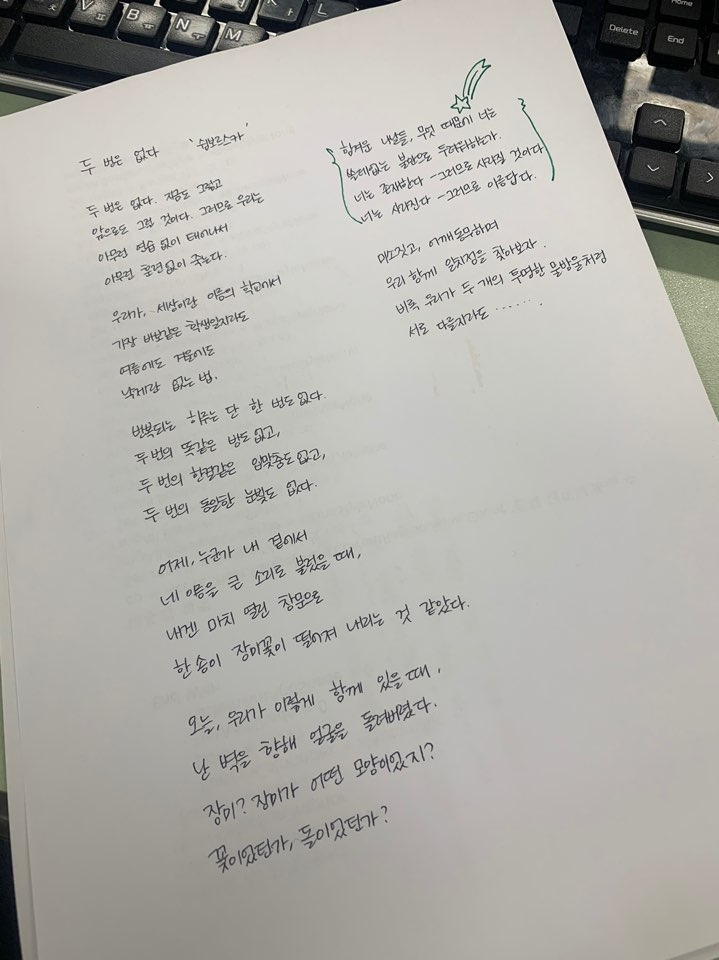 두 번은 없다 '쉼보르스카'
두 번은 없다. 지금도 그렇고
앞으로도 그럴 것이다. 그러므로 우리는
아무런 연습 없이 태어나서
아무런 훈련 없이 죽는다.
우리가, 세상이란 이름의 학교에서
가장 바보같은 학생일지라도
여름에도 겨울에도
낙제란 없는 법.
반복되는 하루는 단 한 번도 없다.
두 번의 똑같은 밤도 없고,
두 번의 한결같은 입맞춤도 없고,
두 번의 동일한 눈빛도 없다.
어제, 누군가 내 곁에서
네 이름을 큰 소리로 불렀을 때,
내겐 마치 열린 창문으로
한 송이 장미꽃이 떨어져 내리는 것 같았다.
오늘, 우리가 이렇게 함께 있을 때,
난 벽을 향해 얼굴을 돌려버렸다.
장미? 장미가 어떤 모양이었지?
꽃이었던가, 돌이었던가?
힘겨운 나날들, 무엇 때문에 너는
쓸데없는 불안으로 두려워하는가.
너는 존재한다 - 그러므로 사라질 것이다
너는 사라진다 - 그러므로 아름답다.
미소짓고, 어깨동무하며
우리 함께 일치점을 찾아보자.
비록 우리가 두 개의 투명한 물방울처럼
서로 다를지라도 .......
B
N
M
Delete
Home
End